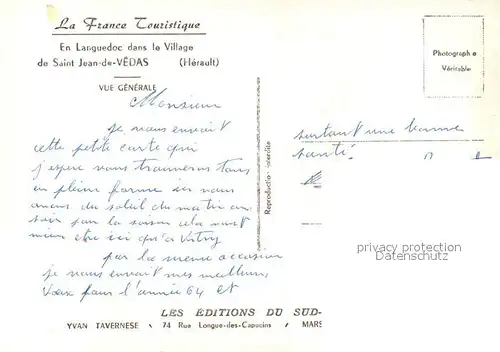 La France Touristique
En Languedoc dans le Village
de Saint Jean-de-VÉDAS (Hérault)
VUE GÉNÉRALE
Photographie
Véritable
Monsieur
je vous envoit
cette petite carte qui
j'espere vous trouveras tous
en pleine forme ici nous
avons du soleil du matin au
soir pour la saison cela vaut
mieu etre ici qu'a Vitry
par la meme occasion
je vous envoit mes meilleurs
Vœux pour l'année 64 et
surtout une bonne
santé.
Reproduction interdite
privacy protection
LES ÉDITIONS DU SUD-
YVAN TAVERNESE \ 74 Rue Longue-des-Capucins / MARS